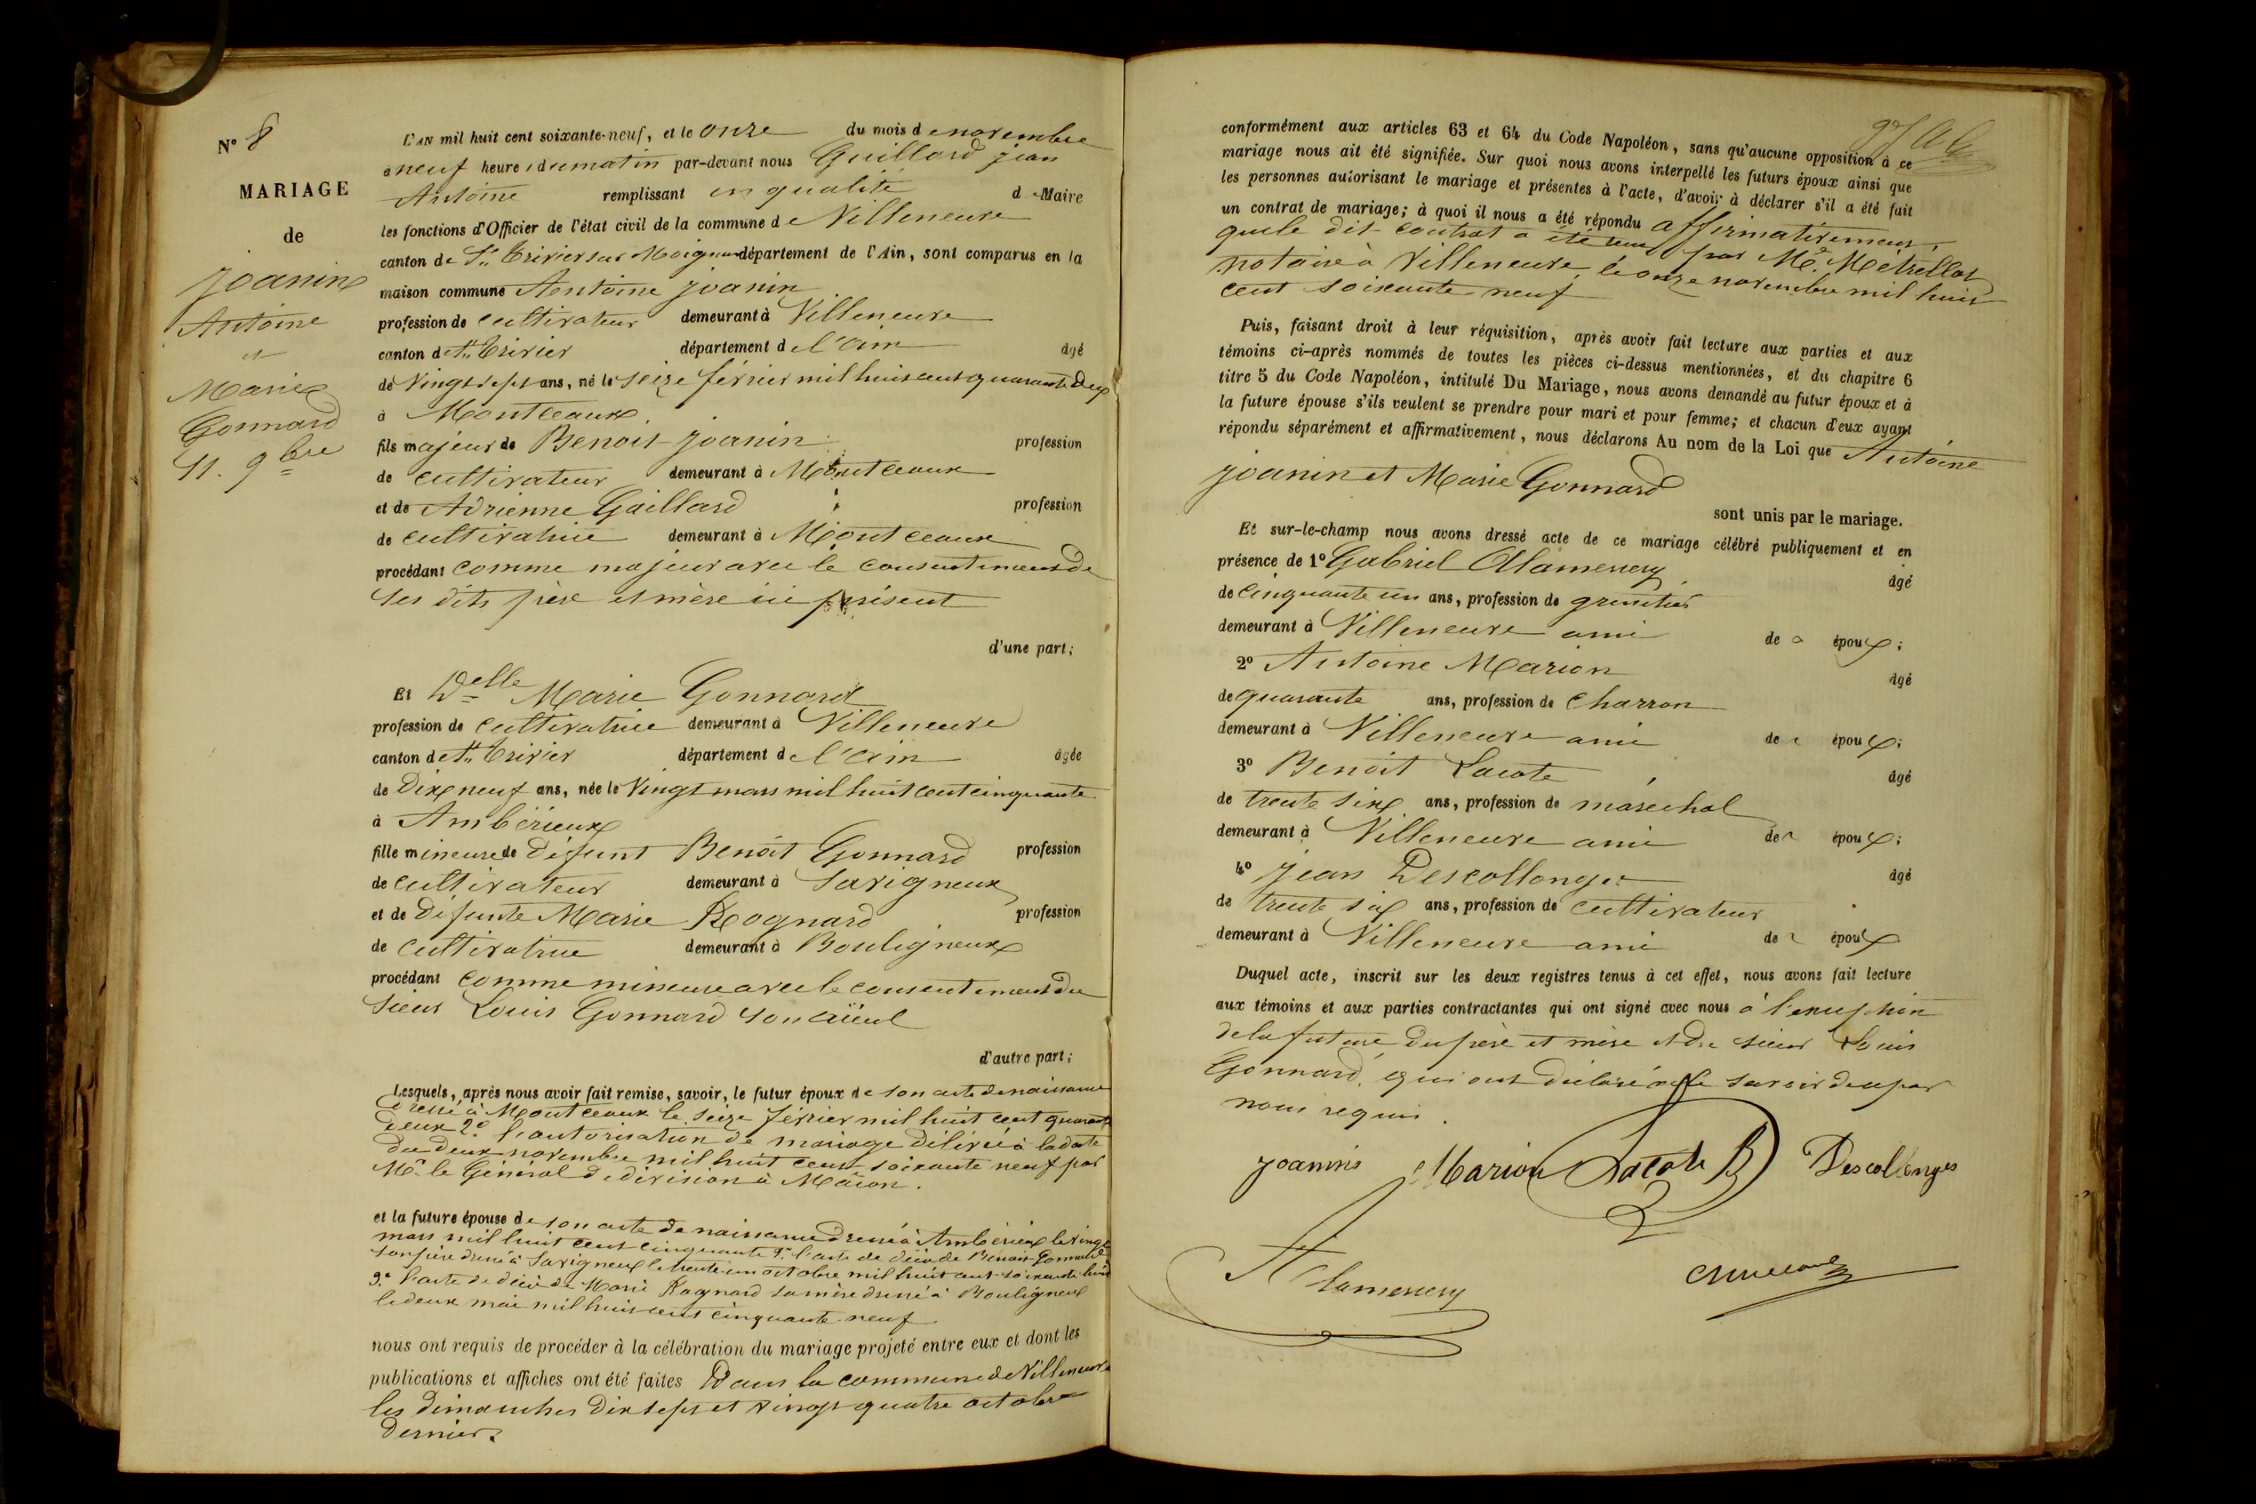 N° 8
MARIAGE
de
joanin
Antoine
et
Marie
Gonnard
11. 9bre
L'AN mil huit cent soixante-neuf, et le onze du mois de novembre
à neuf heure du matin par-devant nous Guillard jean
Antoine remplissant en qualité de Maire
les fonctions d'Officier de l'état civil de la commune de Villeneuve
canton de St Trivier sur Moignans département de l'Ain, sont comparus en la
maison commune Antoine joanin
profession de cultivateur demeurant à Villeneuve
canton de St Trivier département de l'ain âgé
de Vingt sept ans, né le seize février mil huit cent quarante deux
à Montceaux
fils majeur de Benoit joanin profession
de cultivateur demeurant à Montceaux
et de Adrienne Gaillard profession
de cultivatrice demeurant à Montceaux
procédant comme majeur avec le consentement de
ses dits père et mère ici présent
d'une part;
Et Delle Marie Gonnard
profession de cultivatrice demeurant à Villeneuve
canton de St Trivier département de l'ain âgée
de Dix neuf ans, née le Vingt mars mil huit cent cinquante
à Ambérieux
fille mineure de défunt Benoit Gonnard profession
de cultivateur demeurant à Savigneux
et de défunte Marie Rognard profession
de cultivatrice demeurant à Bouligneux
procédant comme mineure avec le consentement du
sieur Louis Gonnard son aïeul
d'autre part;
Lesquels, après nous avoir fait remise, savoir, le futur époux de son acte de naissance
dressé à Montceaux le seize février mil huit cent quarante
deux 2° l'autorisation de mariage délivrée à la date
du deux novembre mil huit cent soixante neuf par
Mr le Général de division à Macon.
et la future épouse de son acte de naissance dressé à Ambérieux le vingt
mars mil huit cent cinquante 2° l'acte de décès de Benoit Gonnard
son père dressé à Savigneux le trente un octobre mil huit cent soixante huit
3° l'acte de décès de Marie Rognard sa mère dressé à Bouligneux
le deux mai mil huit cent cinquante neuf
nous ont requis de procéder à la célébration du mariage projeté entre eux et dont les
publications et affiches ont été faites Dans la commune de Villeneuve
les dimanches dix sept et vingt quatre octobre
dernier.
conformément aux articles 63 et 64 du Code Napoléon, sans qu'aucune opposition à ce
mariage nous ait été signifiée. Sur quoi nous avons interpellé les futurs époux ainsi que
les personnes autorisant le mariage et présentes à l'acte, d'avoir à déclarer s'il a été fait
un contrat de mariage; à quoi il nous a été répondu affirmativement,
que le dit contrat a été reçu par Me Métrellot
notaire à Villeneuve le onze novembre mil huit
cent soixante neuf
Puis, faisant droit à leur réquisition, après avoir fait lecture aux parties et aux
témoins ci-après nommés de toutes les pièces ci-dessus mentionnées, et du chapitre 6
titre 5 du Code Napoléon, intitulé Du Mariage, nous avons demandé au futur époux et à
la future épouse s'ils veulent se prendre pour mari et pour femme; et chacun d'eux ayant
répondu séparément et affirmativement, nous déclarons Au nom de la Loi que Antoine
joanin et Marie Gonnard
sont unis par le mariage.
Et sur-le-champ nous avons dressé acte de ce mariage célébré publiquement et en
présence de 1° Gabriel Alamercery âgé
de cinquante un ans, profession de
demeurant à Villeneuve ami de époux;
2° Antoine Marion âgé
de quarante ans, profession de charron
demeurant à Villeneuve ami de époux;
3° Benoit Lacote âgé
de trente six ans, profession de maréchal
demeurant à Villeneuve ami de époux;
4° jean Descollonges âgé
de trente six ans, profession de cultivateur
demeurant à Villeneuve ami de époux
Duquel acte, inscrit sur les deux registres tenus à cet effet, nous avons fait lecture
aux témoins et aux parties contractantes qui ont signé avec nous à l'exception
de la future du père et mère et du sieur Louis
Gonnard, qui ont déclaré ne le savoir de ce par
nous requis.
joanin Marion Lacote B Descollonges
Alamercery